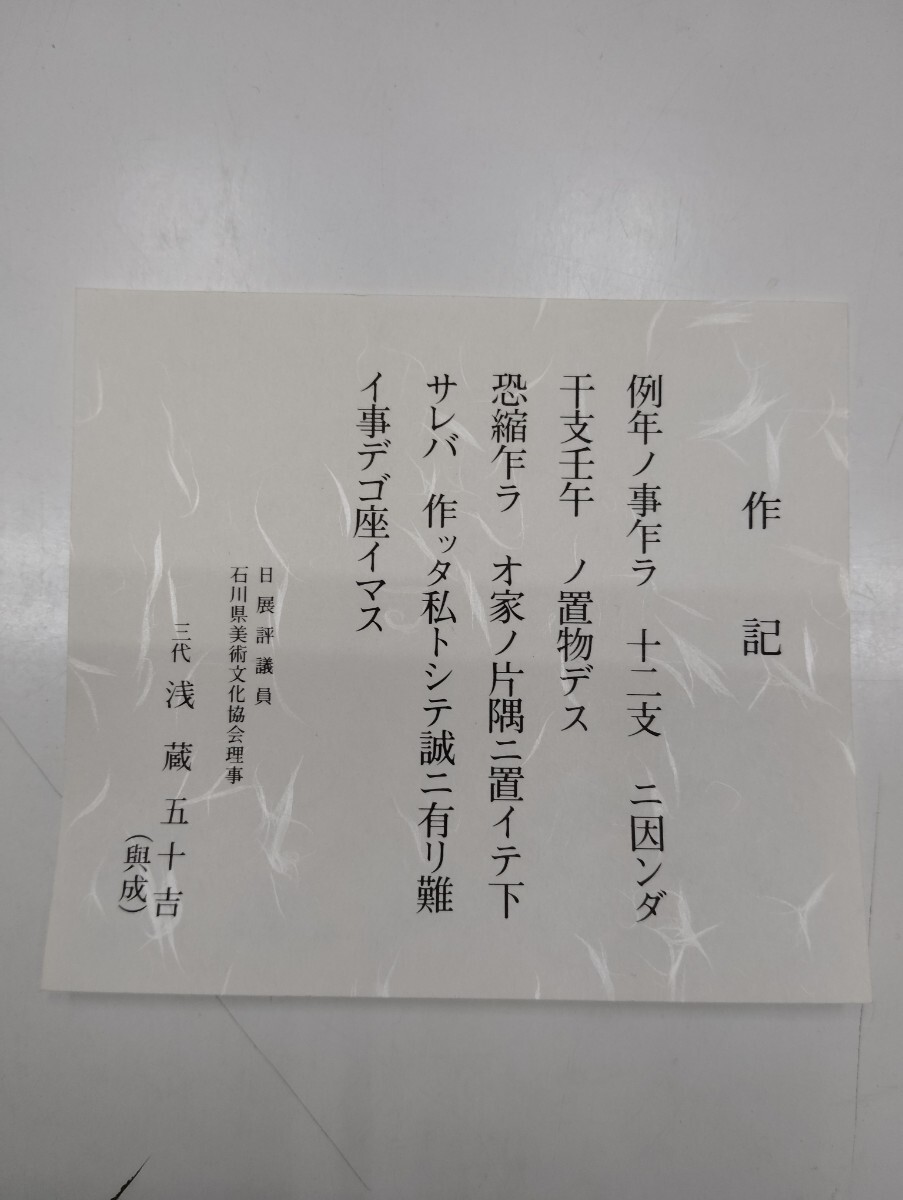 作記
例年ノ事乍ラ 十二支 ニ因ンダ
干支壬午 ノ置物デス
恐縮乍ラ オ家ノ片隅ニ置イテ下
サレバ 作ッタ私トシテ誠ニ有リ難
イ事デゴ座イマス
日展評議員
石川県美術文化協会理事
三代 浅蔵五十吉
(與成)